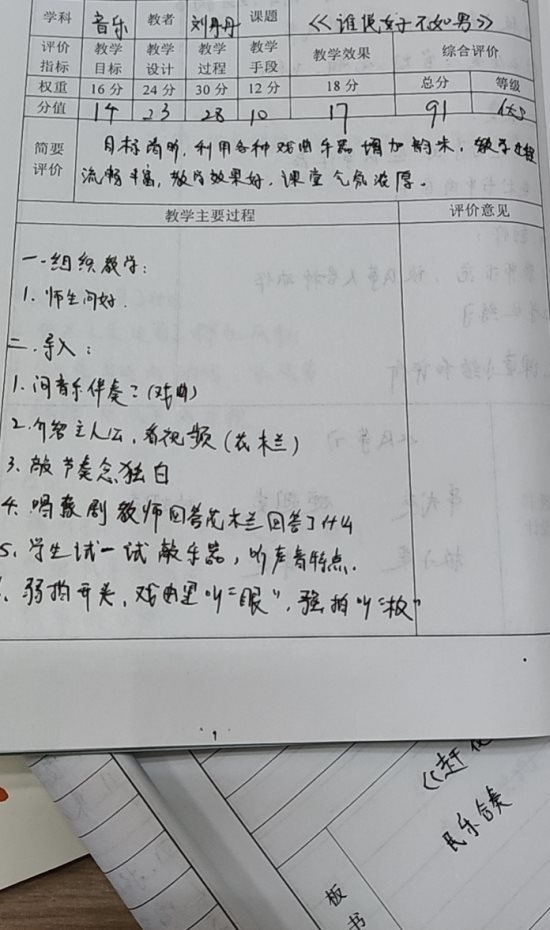 学科 音乐 教者 刘丹丹 课题 《谁说女子不如男》
评价指标 教学目标 教学设计 教学过程 教学手段 教学效果 综合评价
权重 16分 24分 30分 12分 18分 总分 等级
分值 14 23 28 10 17 91 优
简要评价 目标清晰,利用各种戏曲乐器增加韵味,教学过程
流畅丰富,教学效果好,课堂气氛浓厚。
教学主要过程 评价意见
一.组织教学:
1.师生问好.
二.导入:
1.问音乐伴奏?(戏曲)
2.介绍主人公,看视频(花木兰)
3.敲节奏念独白
4.唱豫剧 教师回答花木兰回答了什么
5.学生试一试敲乐器,听声音特点.
、弱拍开关,戏曲里叫“眼”,强拍叫“板”
《赶
民乐合奏
板书